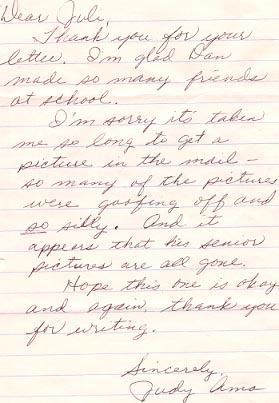 Dear Juli,
Thank you for your
letter. I'm glad Dan
made so many friends
at school.
I'm sorry its taken
me so long to get a
picture in the mail -
so many of the pictures
were goofing off and
so silly. And it
appears that his senior
pictures are all gone.
Hope this one is okay
and again, thank you
for writing.
Sincerely,
Judy Ama